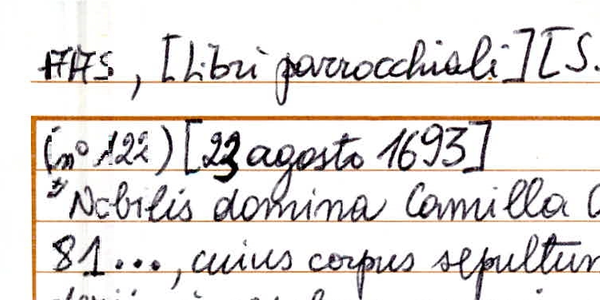 A.H.S, [Libri parrocchiali] [S.
(n° 122) [23 agosto 1693]
"Nobilis domina Camilla
81..., cuius corpus sepultum